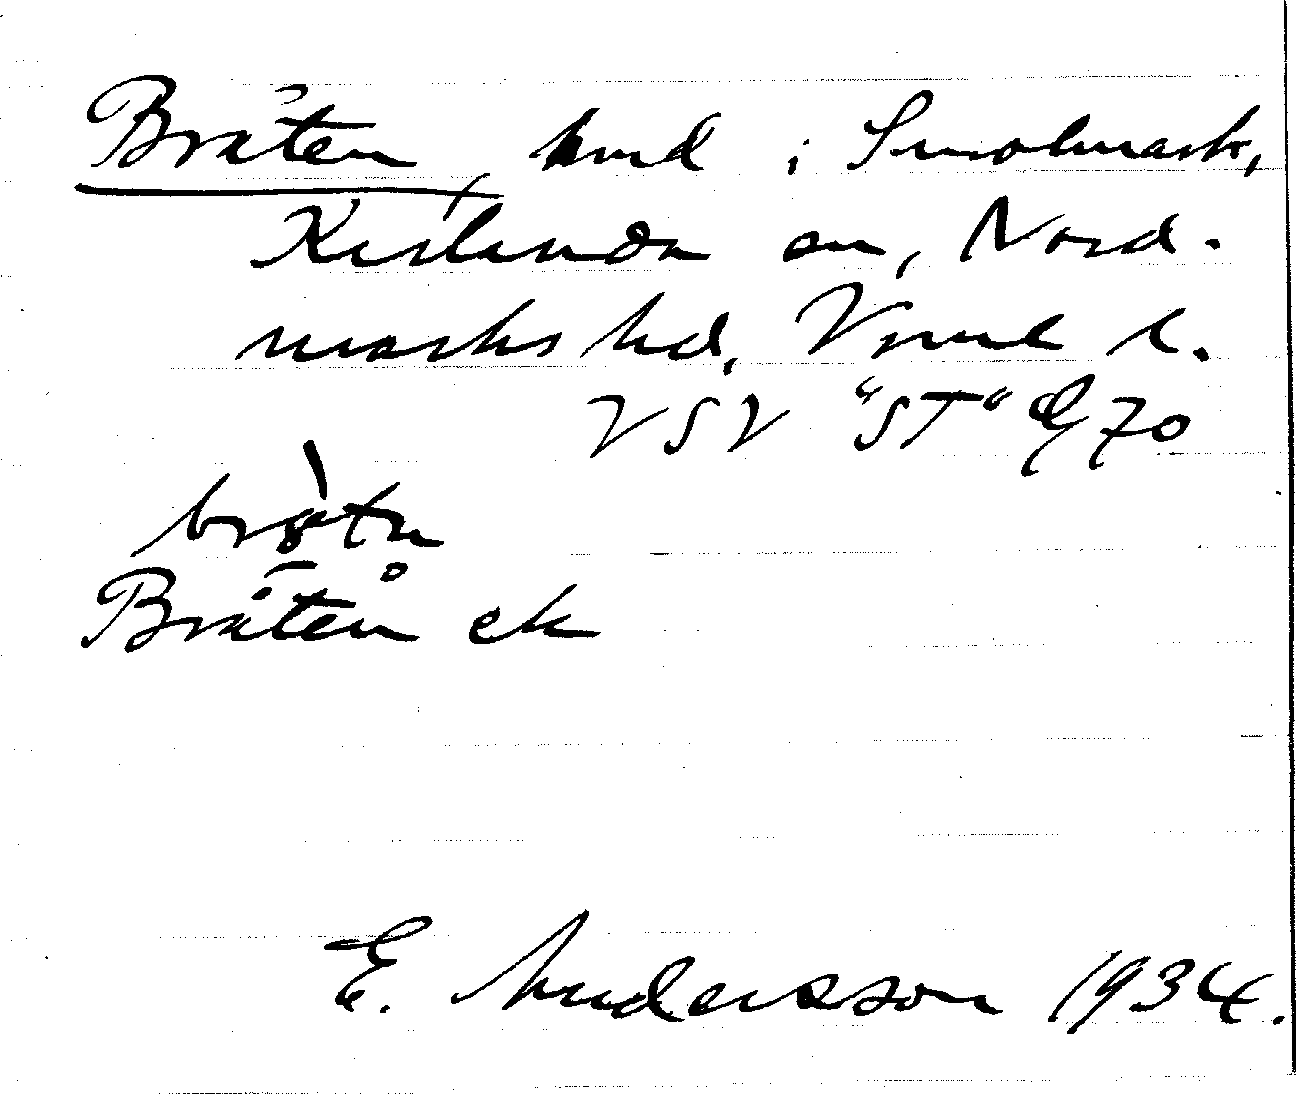 Bråten, hmd i Smolmark,
Karlanda sn, Nord-
marks hd, Värml l.
VSV "ST" 70
Bråten ek
E. Andersson 1934.